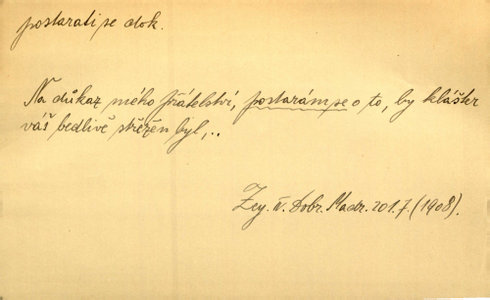 postarati se dok.
Na důkaz mého přátelství, postarám se o to, by klášter
váš bedlivě střežen byl,..
Zey. IV. Dobr. Madr. 201.7. (1908).